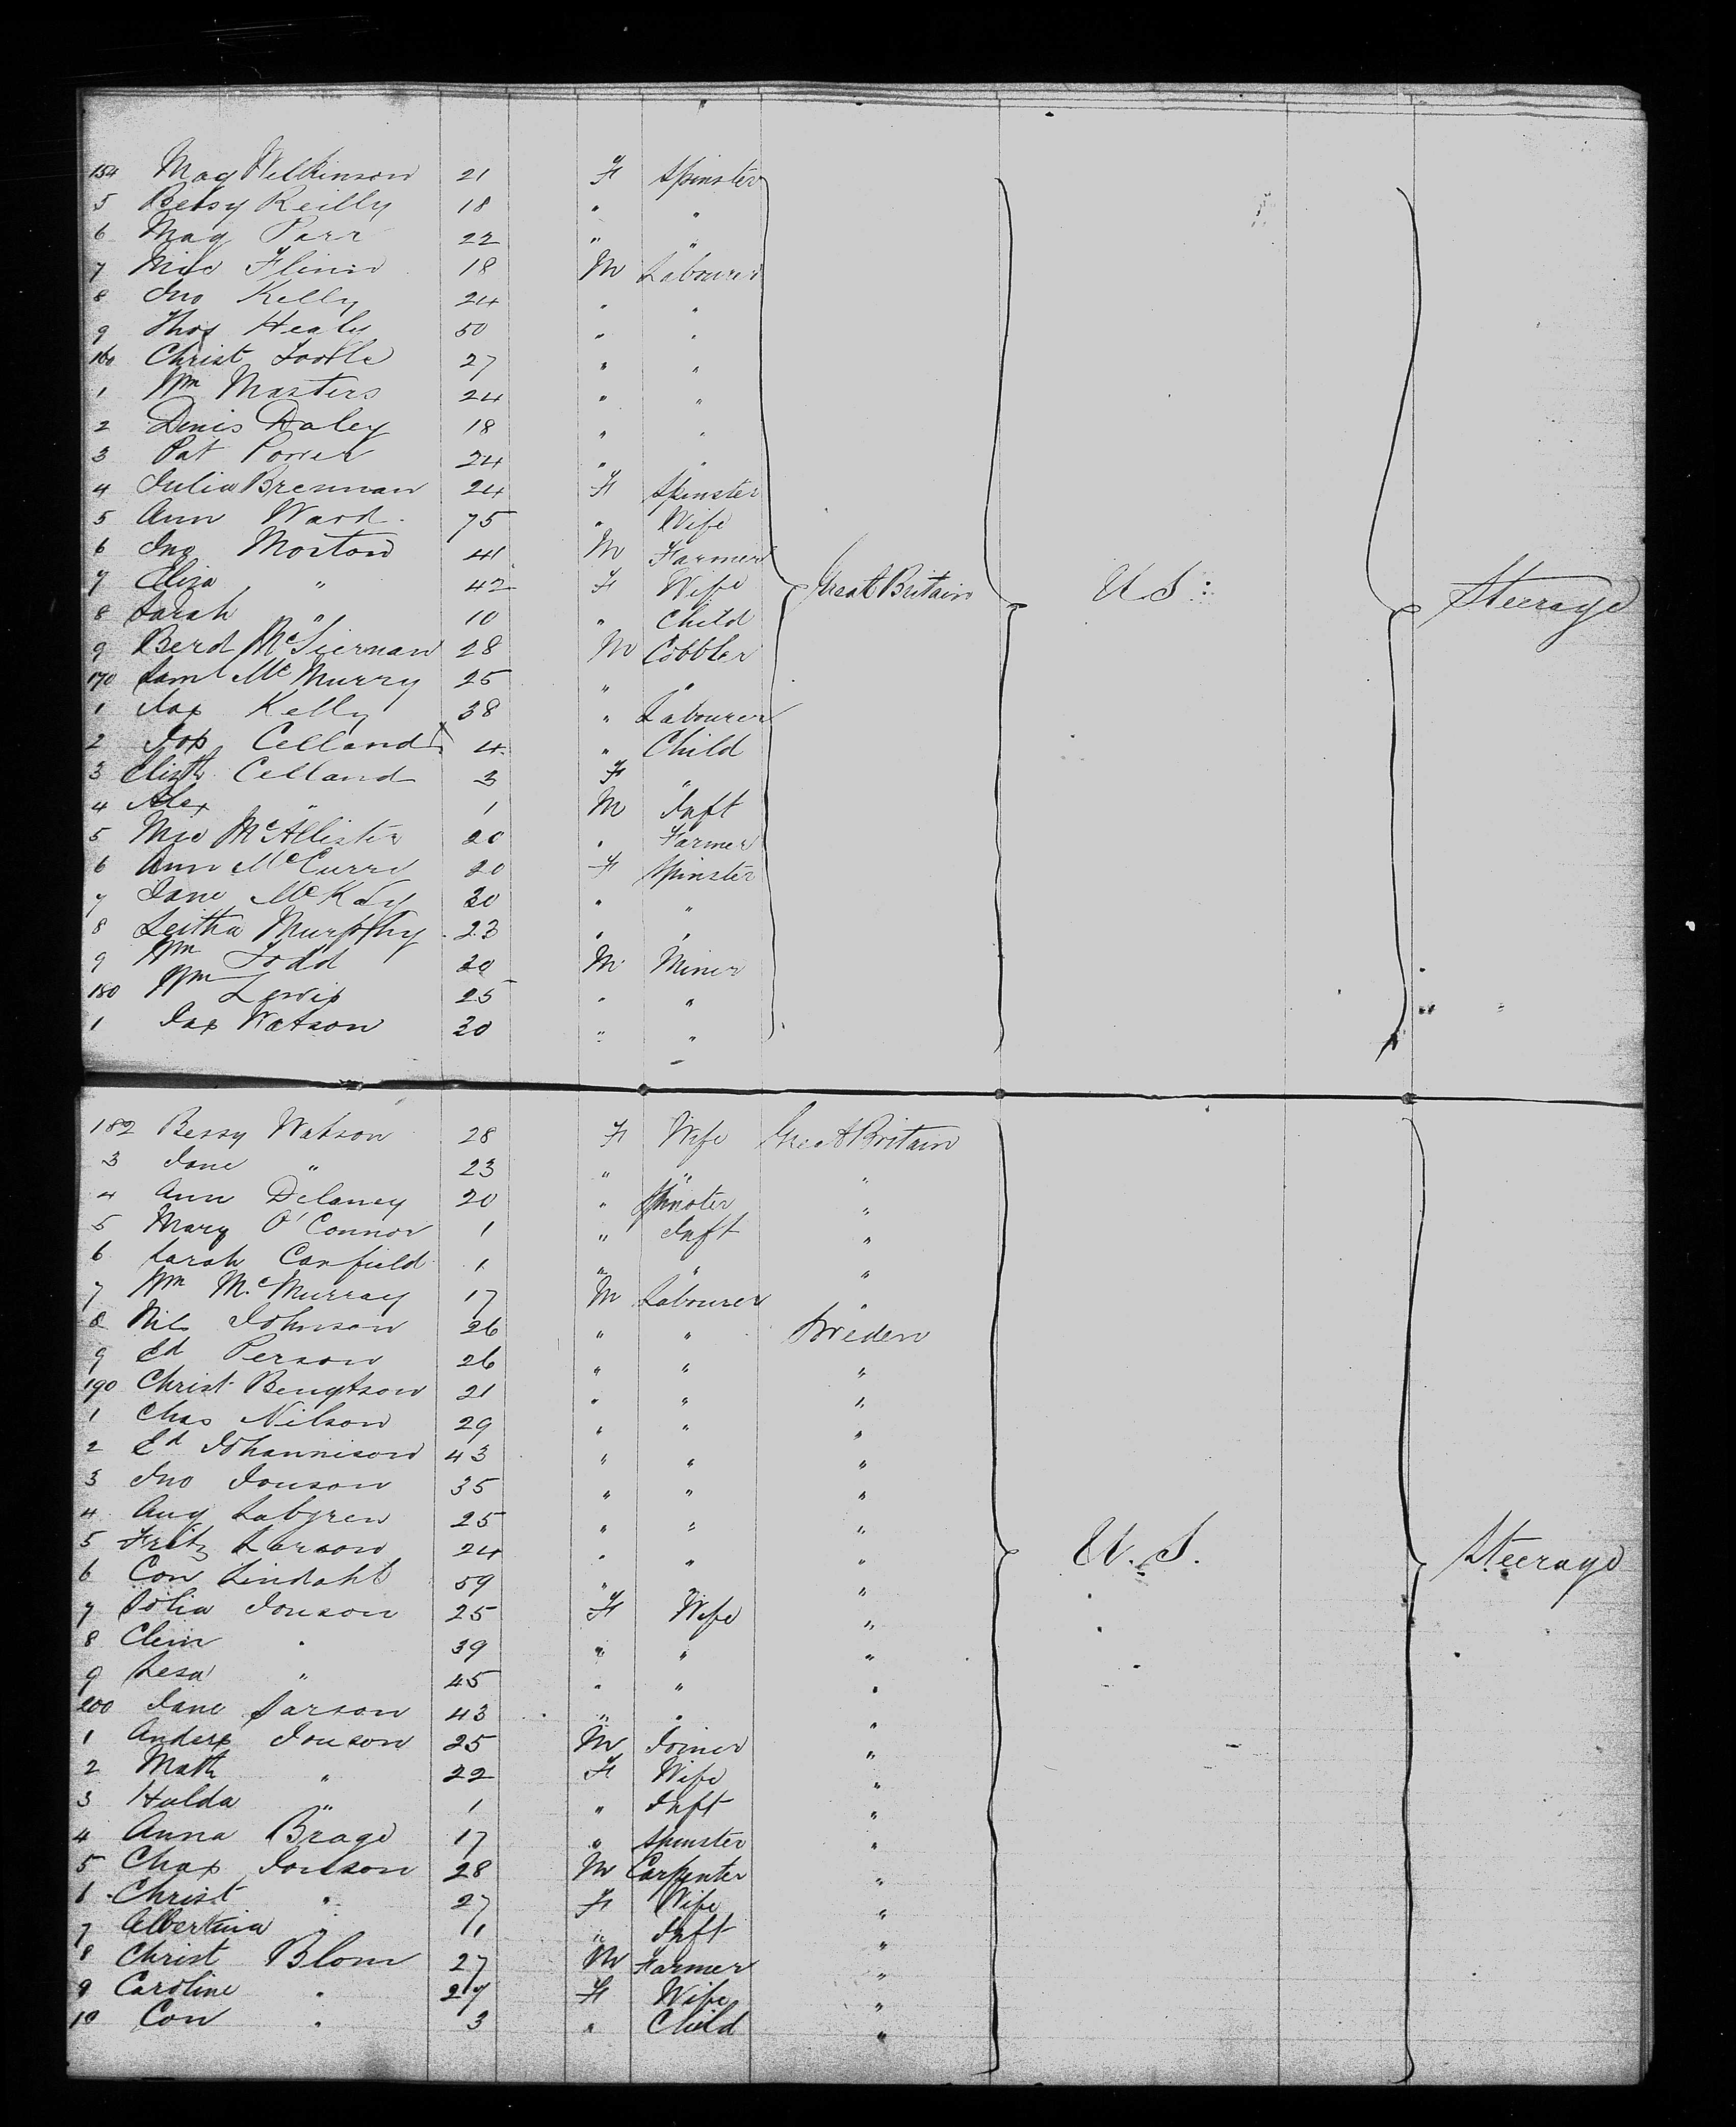 154 Mag Wilkinson 21 F Spinster
5 Betsy Reilly 18 " "
6 Mag Parr 22 " "
7 Mic Flinn 18 M Labourer
8 Jno Kelly 24 " "
9 Thos Healy 50 " "
160 Christ Tootle 27 " "
1 Wm Masters 24 " "
2 Denis Daley 18 " "
3 Pat Power 24 " "
4 Julia Brennan 24 F Spinster
5 Ann Ward 75 " Wife
6 Jno Morton 41 M Farmer
7 Eliza " 42 F Wife Great Britain U S: Steerage
8 Sarah " 10 " Child
9 Berd McTiernan 28 M Cobbler
170 Saml McMurry 25 " "
1 Jas Kelly 38 " Labourer
2 Jos Celland 4 " Child
3 Elizth Celland 3 F "
4 Alex " 1 M Inft
5 Mic McAllister 20 " Farmer
6 Ann McCurry 20 F Spinster
7 Jane McKay 20 " "
8 Leitha Murphy 23 " "
9 Wm Todd 20 M Miner
180 Wm Lewis 25 " "
1 Jas Watson 30 " "
182 Bessy Watson 28 F Wife Great Britain
3 Jane " 23 " " "
4 Ann Delaney 20 " Spinster "
5 Mary O'Connor 1 " Inft "
6 Sarah Canfield 1 " " "
7 Wm McMurray 17 M Labourer "
8 Nils Johnson 26 " " Sweden
9 Ed Person 26 " " "
190 Christ Bengtson 21 " " "
1 Chas Nilson 29 " " "
2 Ed Johannison 43 " " "
3 Jno Jonson 35 " " "
4 Aug 25 " " "
5 Fritz Larson 24 " " " U.S. Steerage
6 Con Lindahl 59 " " "
7 Sofia Jonson 25 F Wife "
8 Clein " 39 " " "
9 Lesa " 45 " " "
200 Jane Larson 43 " " "
1 Anders Jonson 25 M Joiner "
2 Math " 22 F Wife "
3 Hulda " 1 " Inft "
4 Anna Brage 17 " Spinster "
5 Chas Jonson 28 M Carpenter "
6 Christ " 27 F Wife "
7 Albertina " 11 " Inft "
8 Christ Blom 27 M Farmer "
9 Caroline " 27 F Wife "
10 Con " 3 " Child "